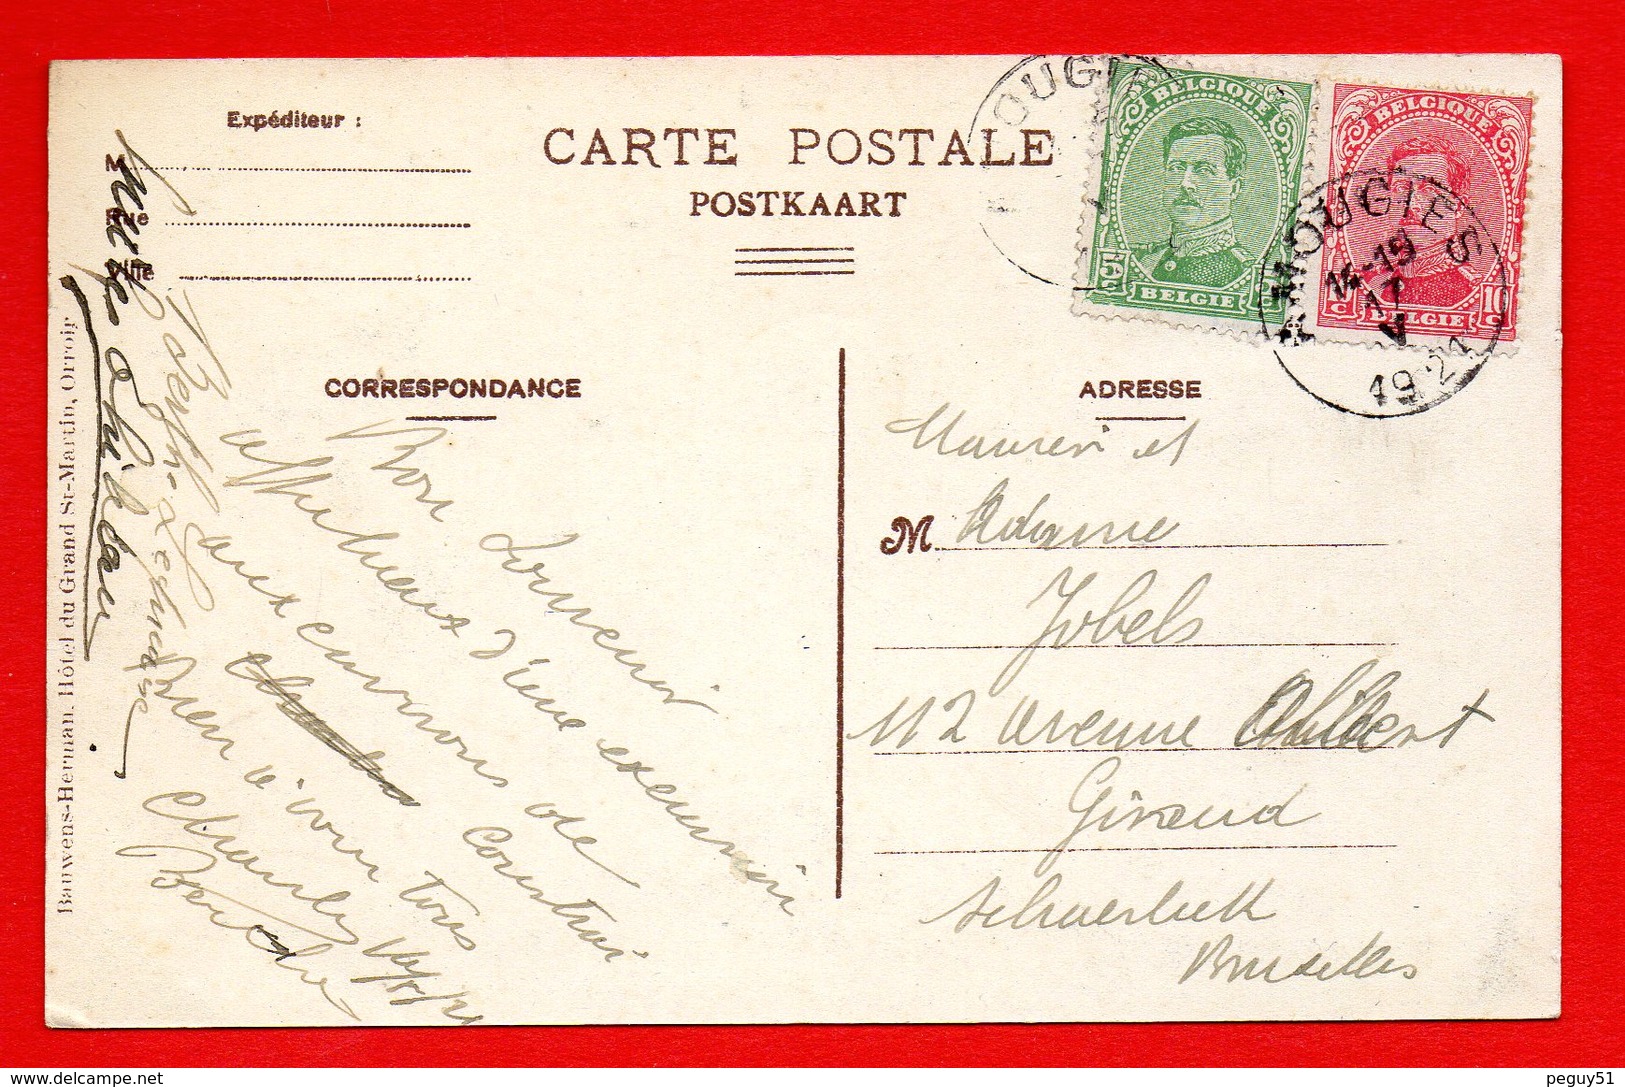 Expéditeur :
Rue
Ville
CARTE POSTALE
POSTKAART
OUGIE
BELGIQUE
5 c
BELGIE
BELGIQUE
10 c
BELGIE
AMOUGIES
14-19
17
V
1921
CORRESPONDANCE
ADRESSE
Bon Souvenir
affectueux d'une excursion
aux environs de
Courtrai
bien à vous tous
Charly
Bauwens-Hernan. Hôtel du Grand St-Martin, Orroir
et
M Madame
Jobels
112 avenue Albert
Giraud
Schaerbeek
Bruxelles
peguy51